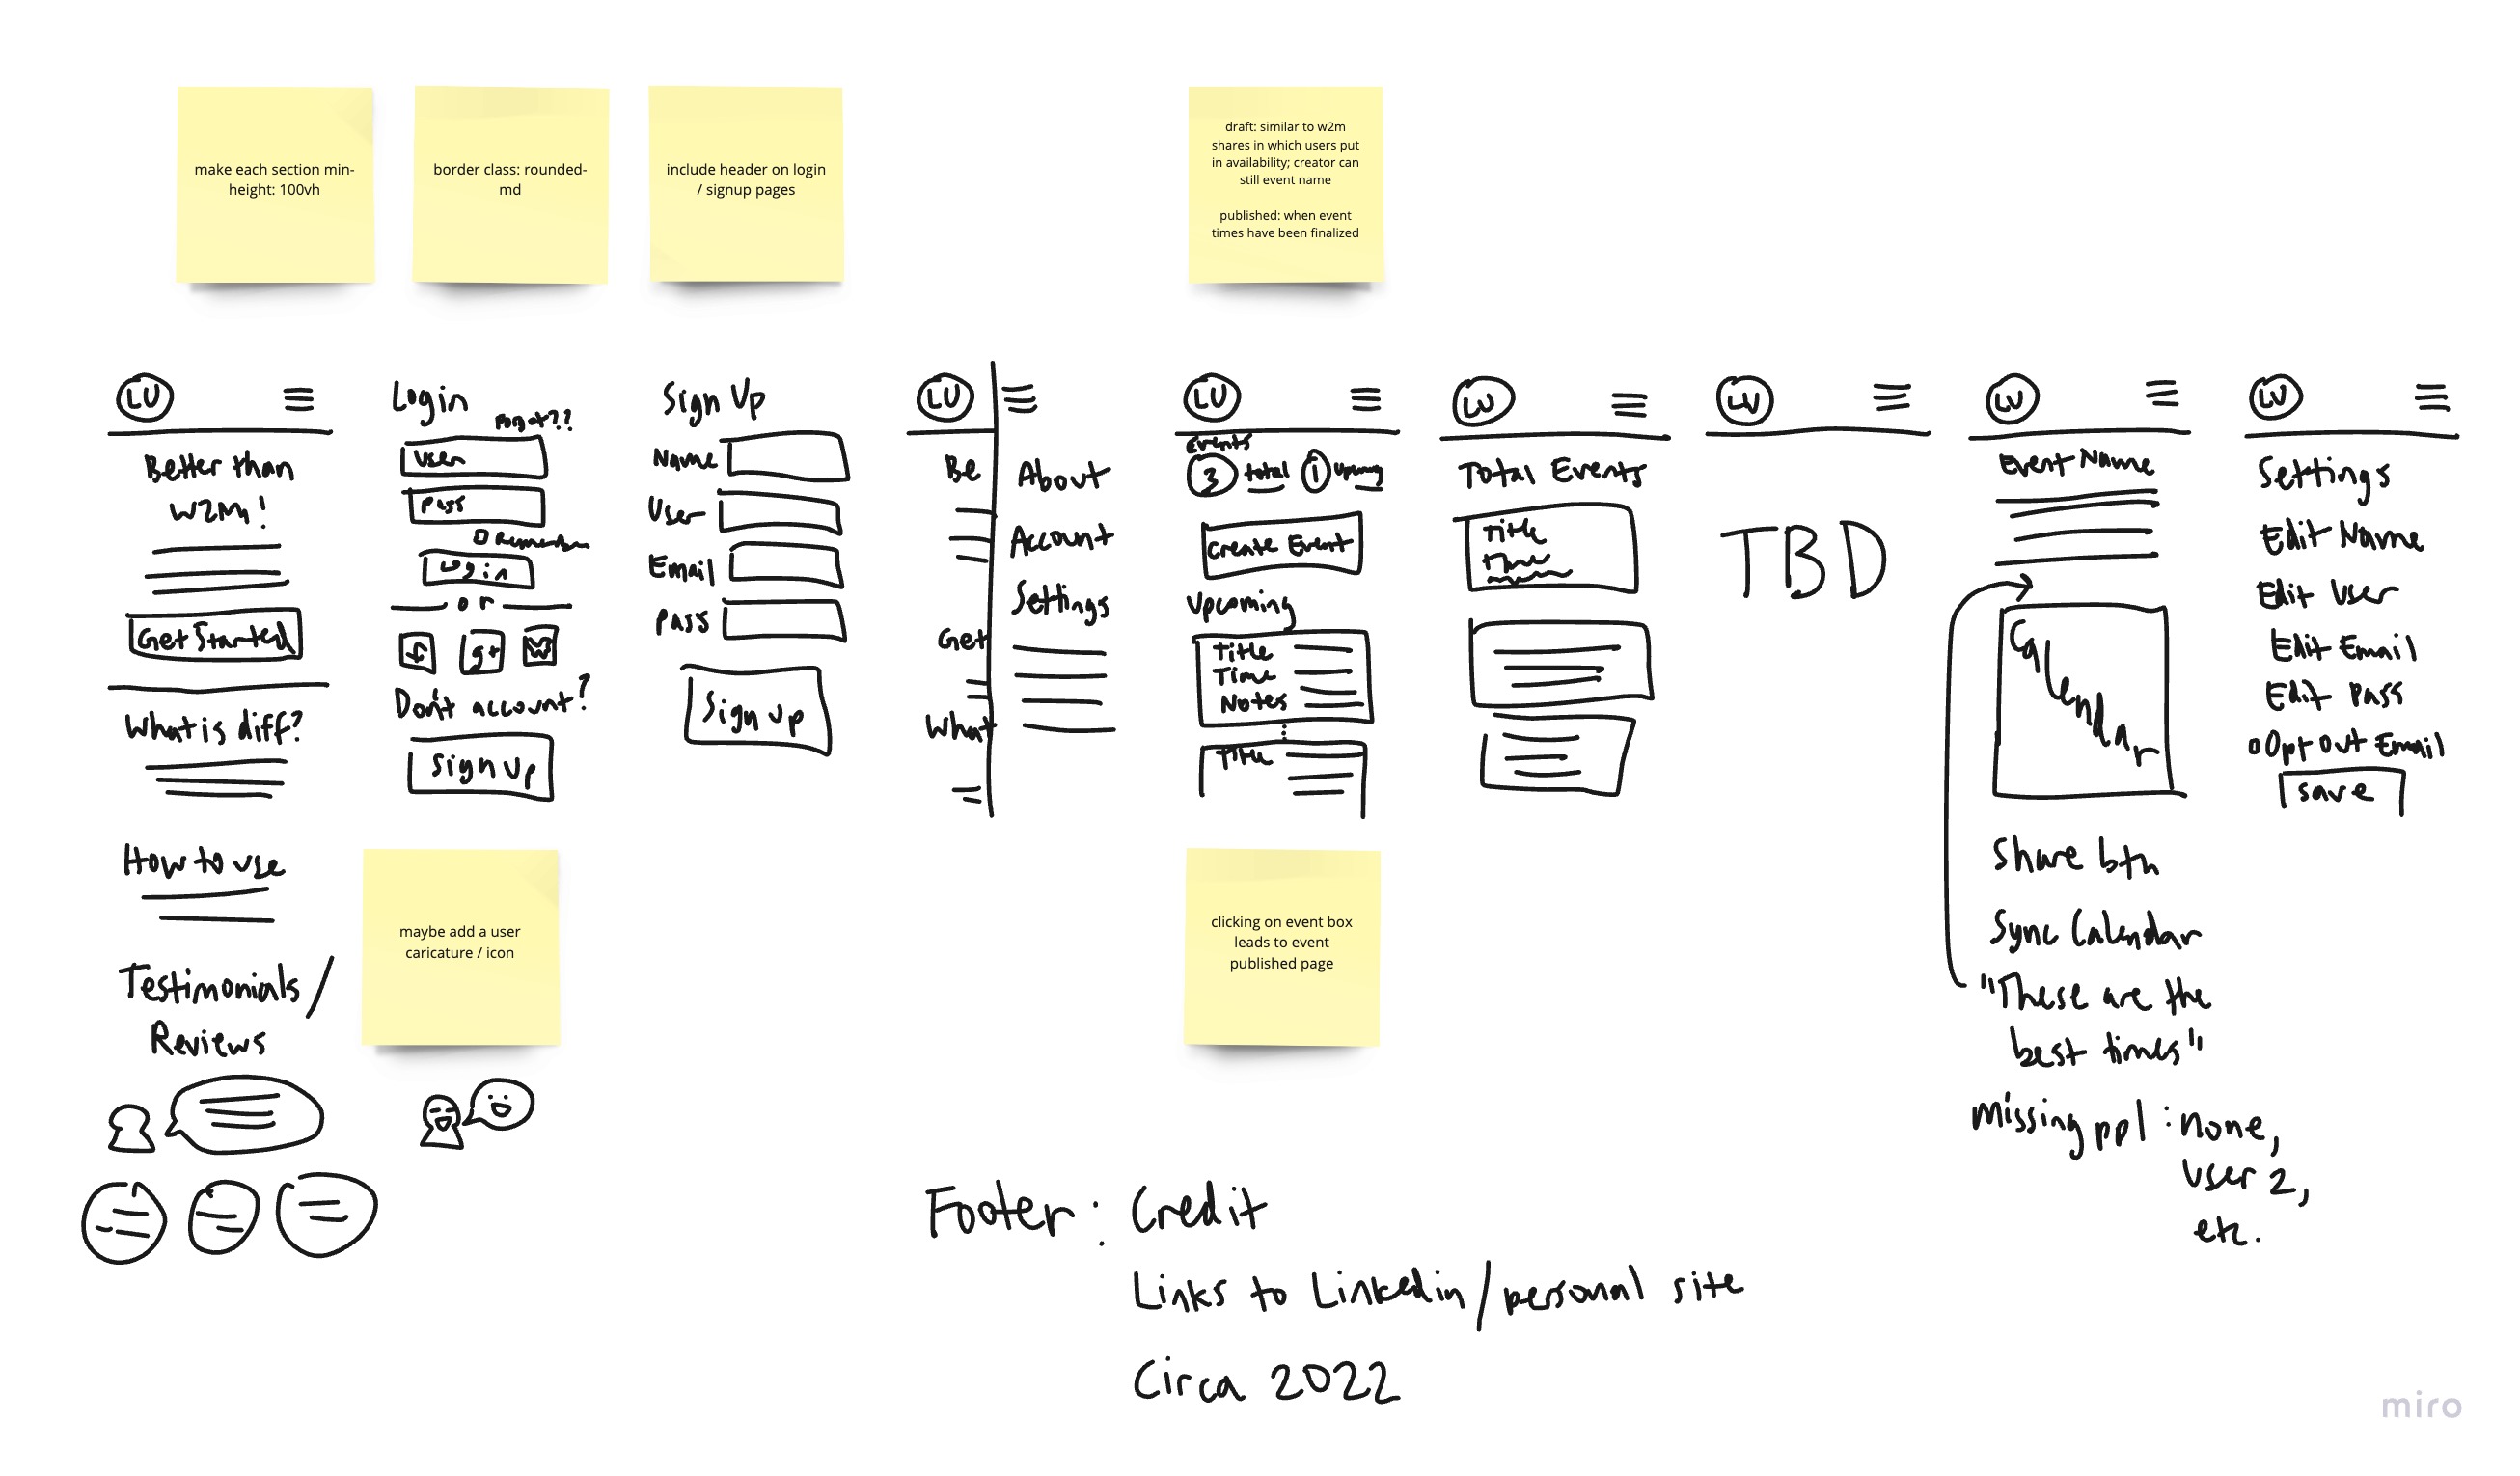 make each section min-
height: 100vh
border class: rounded-
md
include header on login
/ signup pages
draft: similar to w2m
shares in which users put
in availability; creator can
still event name
published: when event
times have been finalized
LU
Better than
W2M!
Get Started
What is diff?
How to use
Testimonials/
Reviews
Login
Forgot??
User
Pass
Remember
Login
or
f
g+
Don't account?
Sign Up
maybe add a user
caricature / icon
Sign Up
Name
User
Email
Pass
Sign up
LU
Be
Get
What
About
Account
Settings
LU
Events
3 total 1 Upcoming
Create Event
Upcoming
Title
Time
Notes
Title
clicking on event box
leads to event
published page
LU
Total Events
Title
Time
LU
TBD
LU
Event Name
Calendar
Share btn
Sync Calendar
"These are the
best times"
missing ppl: none,
user 2,
etc.
LU
Settings
Edit Name
Edit User
Edit Email
Edit Pass
Opt Out Email
save
Footer: Credit
Links to Linkedin/personal site
Circa 2022
miro